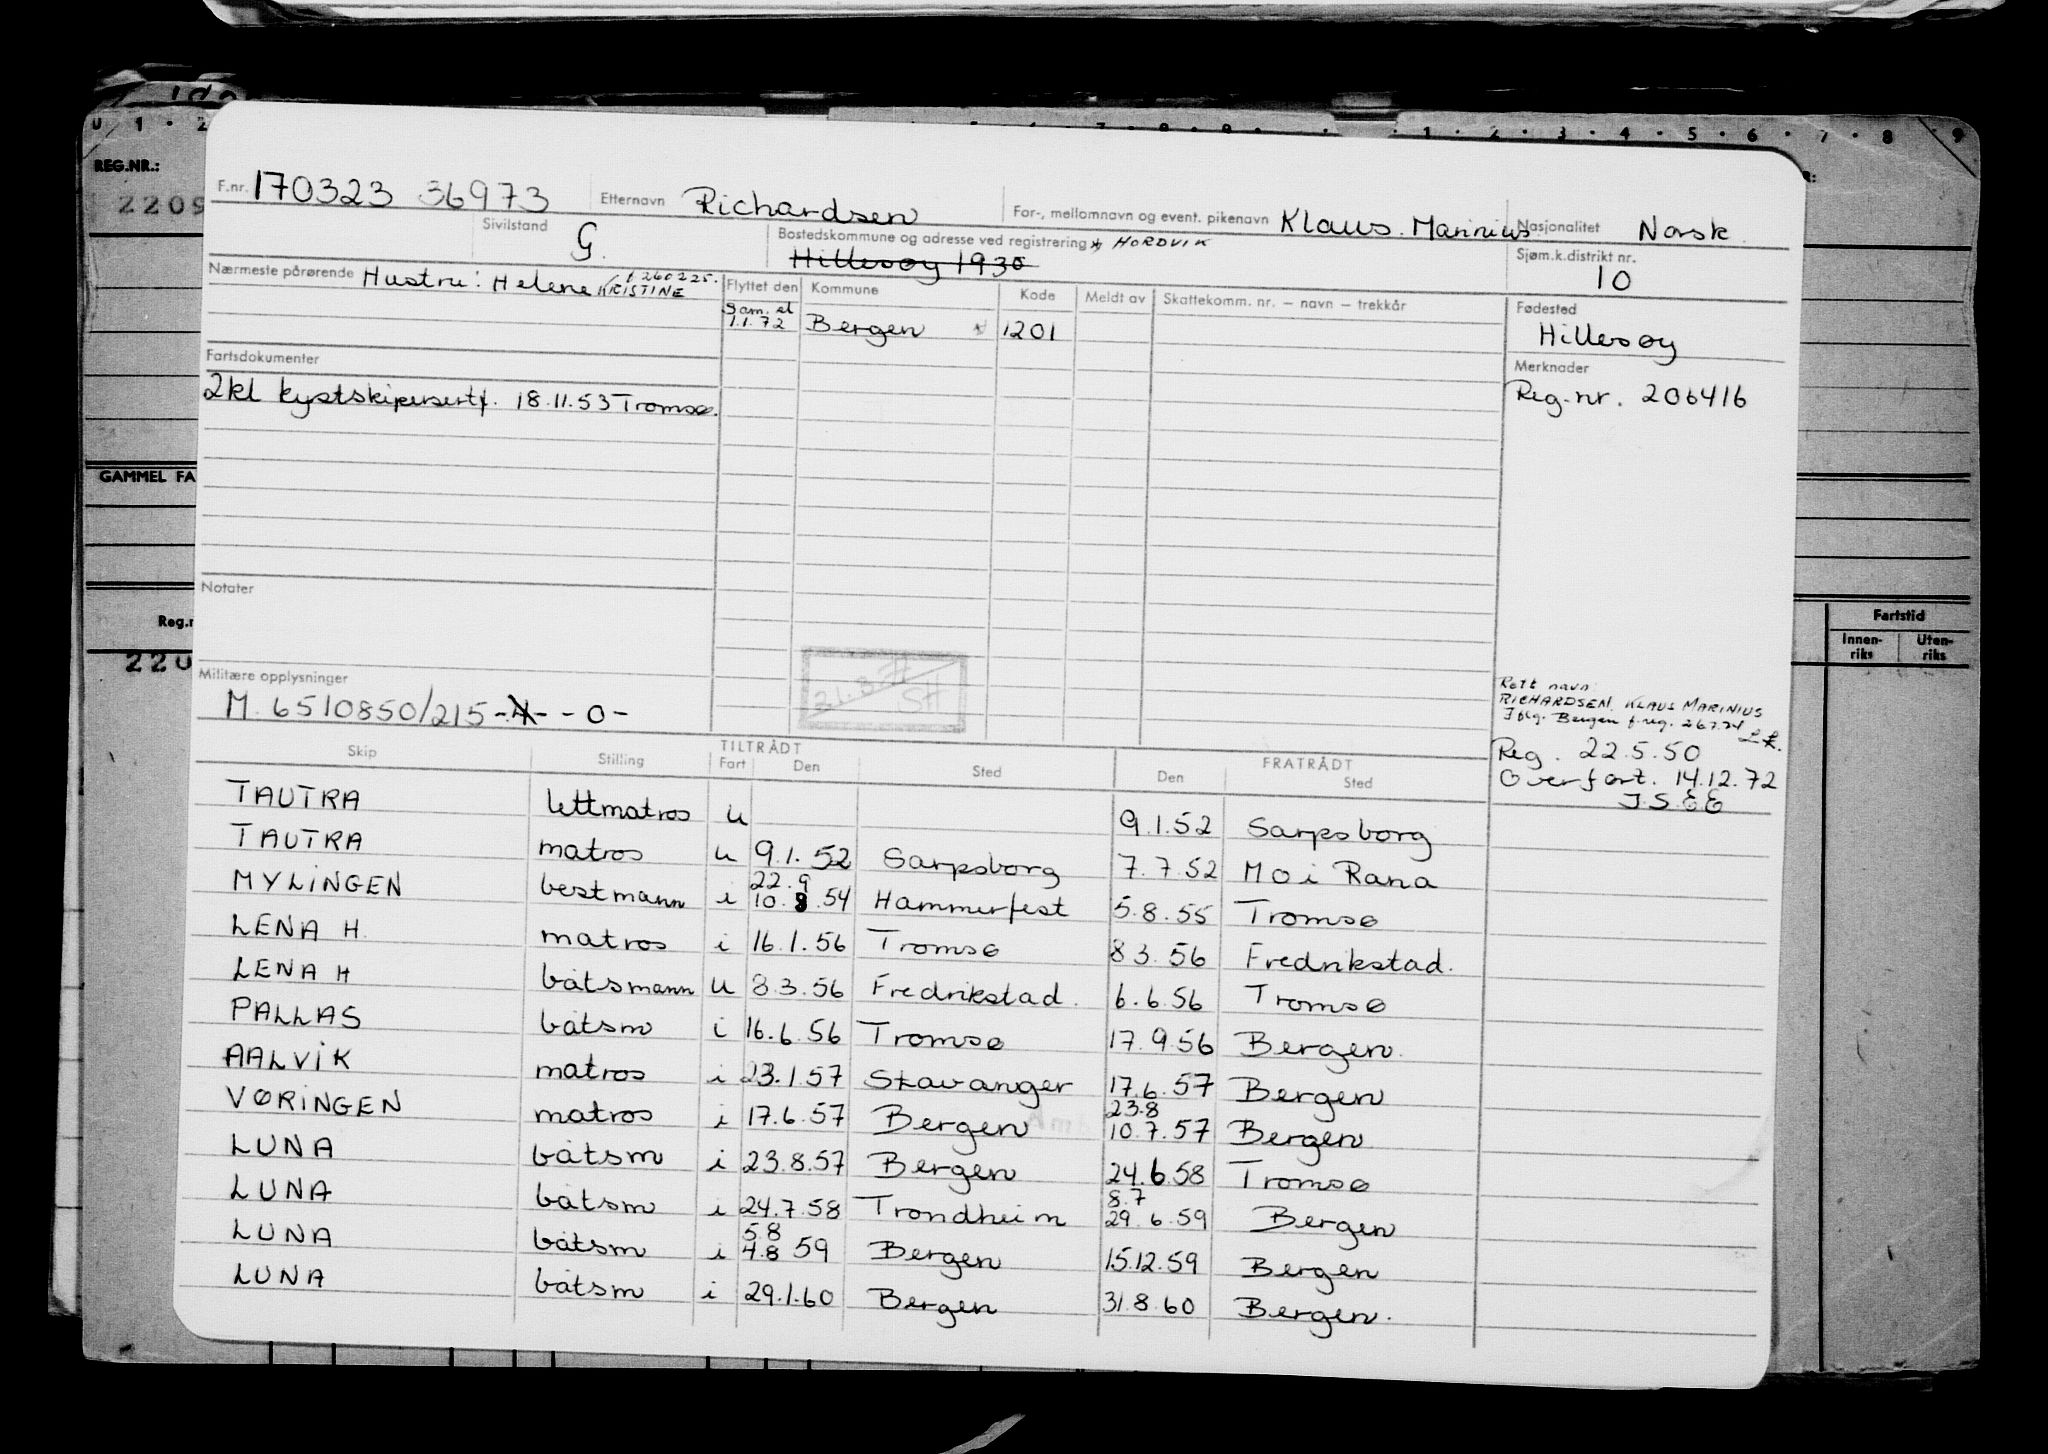 U 1 · 2 1 · 2 · 3 · 4 · 5 · 6 · 7 · 8 · 9
REG.NR.:
2209
F.nr. 170323 36973 Etternavn Richardsen For-, mellomnavn og event. pikenavn Klaus. Marinius Nasjonalitet Norsk
Sivilstand G. Bostedskommune og adresse ved registrering * HORDVIK
Hillesøy 1930
Sjøm.k.distrikt nr. 10
Nærmeste pårørende Hustru: Helene KRISTINE f 260225.
Flyttet den Kommune Kode Meldt av Skattekomm. nr. – navn – trekkår
Fødested
Hillesøy
Sam. sl
1.1.72 Bergen * 1201
Fartsdokumenter
2kl kystskipersertf. 18.11.53 Tromsø.
Merknader
Reg.-nr. 206416
GAMMEL FA
Notater
Reg.n
220
Fartstid
Innen-
riks
Uten-
riks
21.3.77
SH
Militære opplysninger
M. 6510850/215 - - 0 -
Rett navn
RICHARDSEN, KLAUS MARINIUS
Iflg. Bergen f.reg. 26.7.74
Reg. 22.5.50
Overført. 14.12.72
J.S.E E
TILTRÅDT FRATRÅDT
Skip Stilling Fart Den Sted Den Sted
TAUTRA lettmatros u 9.1.52 Sarpsborg
TAUTRA matros u 9.1.52 Sarpsborg 7.7.52 Mo i Rana
22.9
MYLINGEN bestmann i 10.8.54 Hammerfest 5.8.55 Tromsø
LENA H. matros i 16.1.56 Tromsø 8 3.56 Fredrikstad.
LENA H båtsmann u 8.3.56 Fredrikstad. 6.6.56 Tromsø
PALLAS båtsm i 16.6.56 Tromsø 17.9.56 Bergen.
AALVIK matros i 23.1.57 Stavanger 17.6.57 Bergen
23.8
VØRINGEN matros i 17.6.57 Bergen 10.7.57 Bergen
LUNA båtsm i 23.8.57 Bergen 24.6.58 Tromsø
8.7
LUNA båtsm i 24.7.58 Trondheim 29.6.59 Bergen
5.8
LUNA båtsm i 4.8 59 Bergen 15.12.59 Bergen
LUNA båtsm i 29.1.60 Bergen 31.8.60 Bergen.